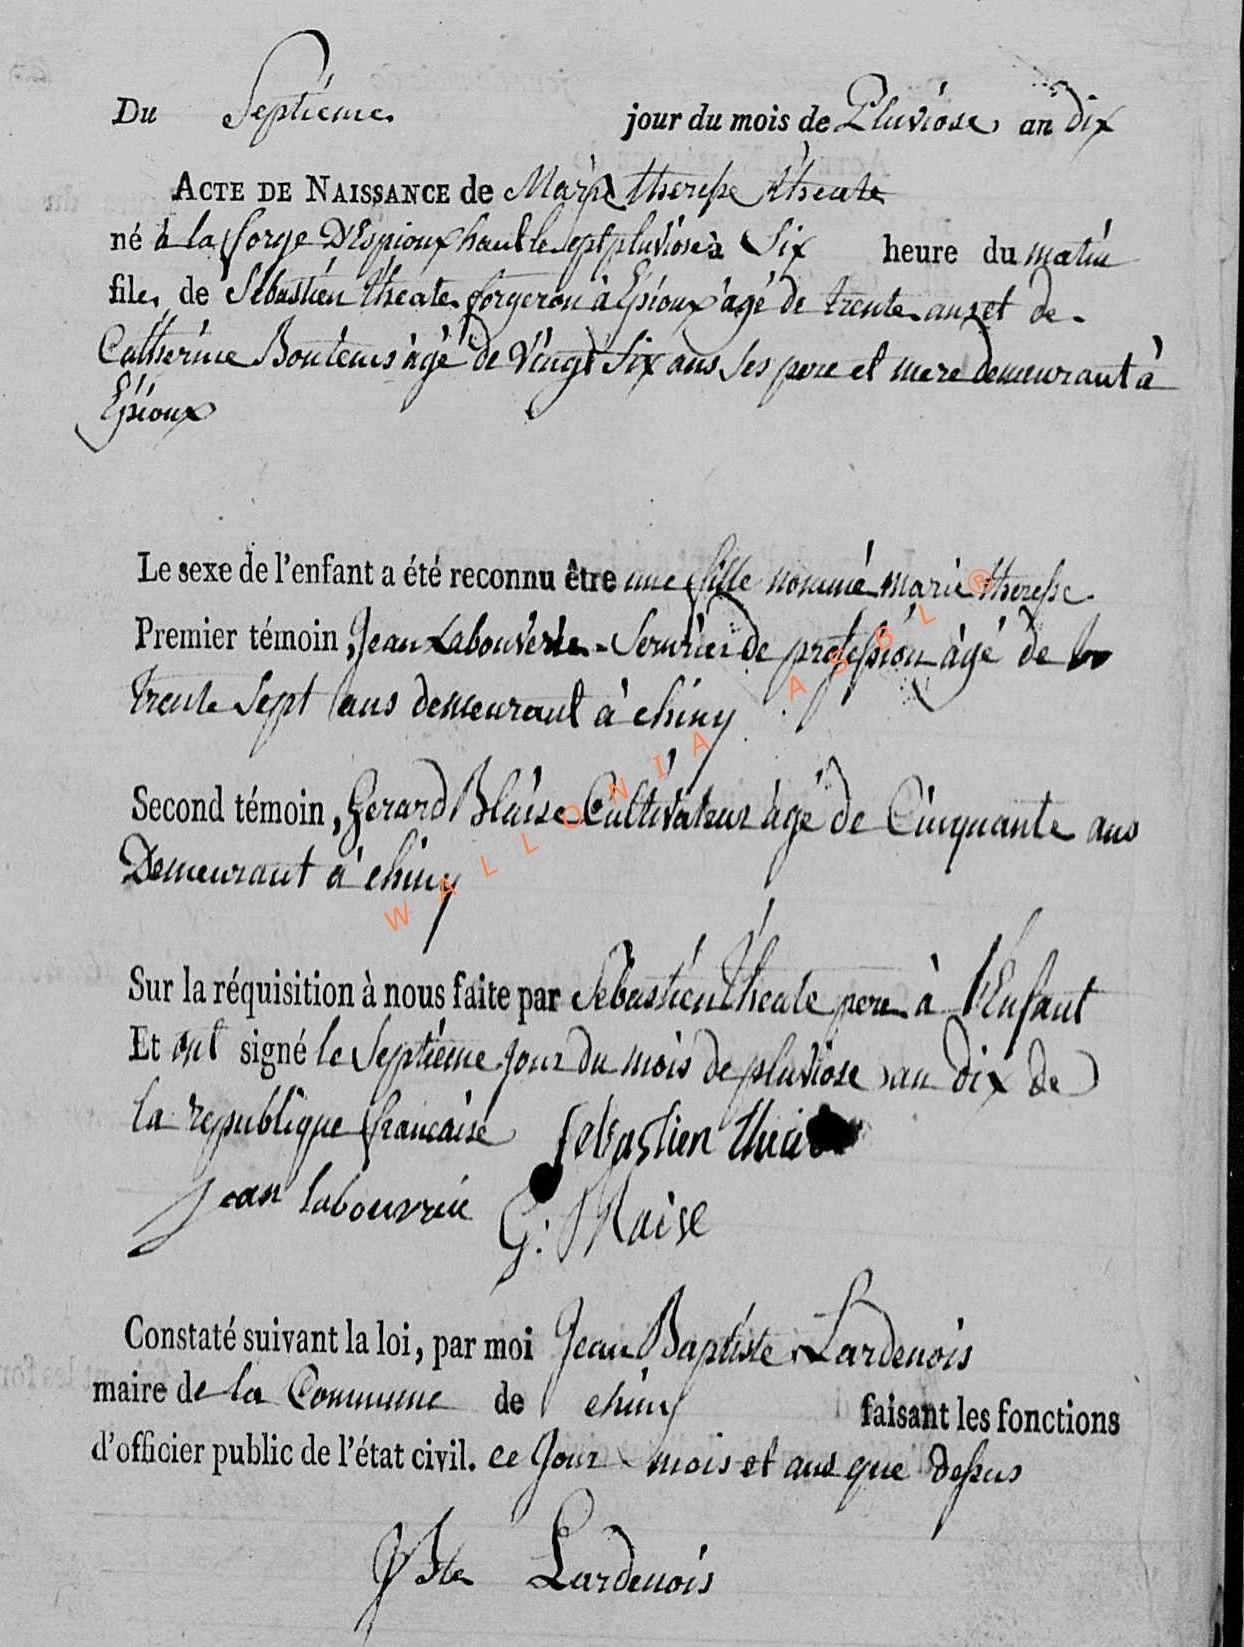 Du Septieme jour du mois de Pluviose an dix
ACTE DE NAISSANCE de Marie therese theate
né à la forge D'Espioux haut le sept pluviose à Six heure du matin
file de Sébastien theate forgeron à Epioux âgé de trente ans et de
Catherine Boutems âgé de vingt six ans ses pere et mere demeurant à
Epioux
Le sexe de l'enfant a été reconnu être une fille nommé marie therese
Premier témoin, Jean Labouverie Serurier de profession âgé de
trente sept ans demeurant à chiny
Second témoin, Gerard Blaise Cultivateur âgé de Cinquante ans
Demeurant à chiny
Sur la réquisition à nous faite par Sébastien theate pere à l'Enfant
Et ont signé le Septieme jour du mois de pluviose an dix de
la republique francaise sebastien
jean labouvrie G: Blaise
Constaté suivant la loi, par moi Jean Baptiste Lardenois
maire de la Commune de chiny faisant les fonctions
d'officier public de l'état civil. ce jour mois et ans que dessus
JBte Lardenois
WALLONIA ASBL ®